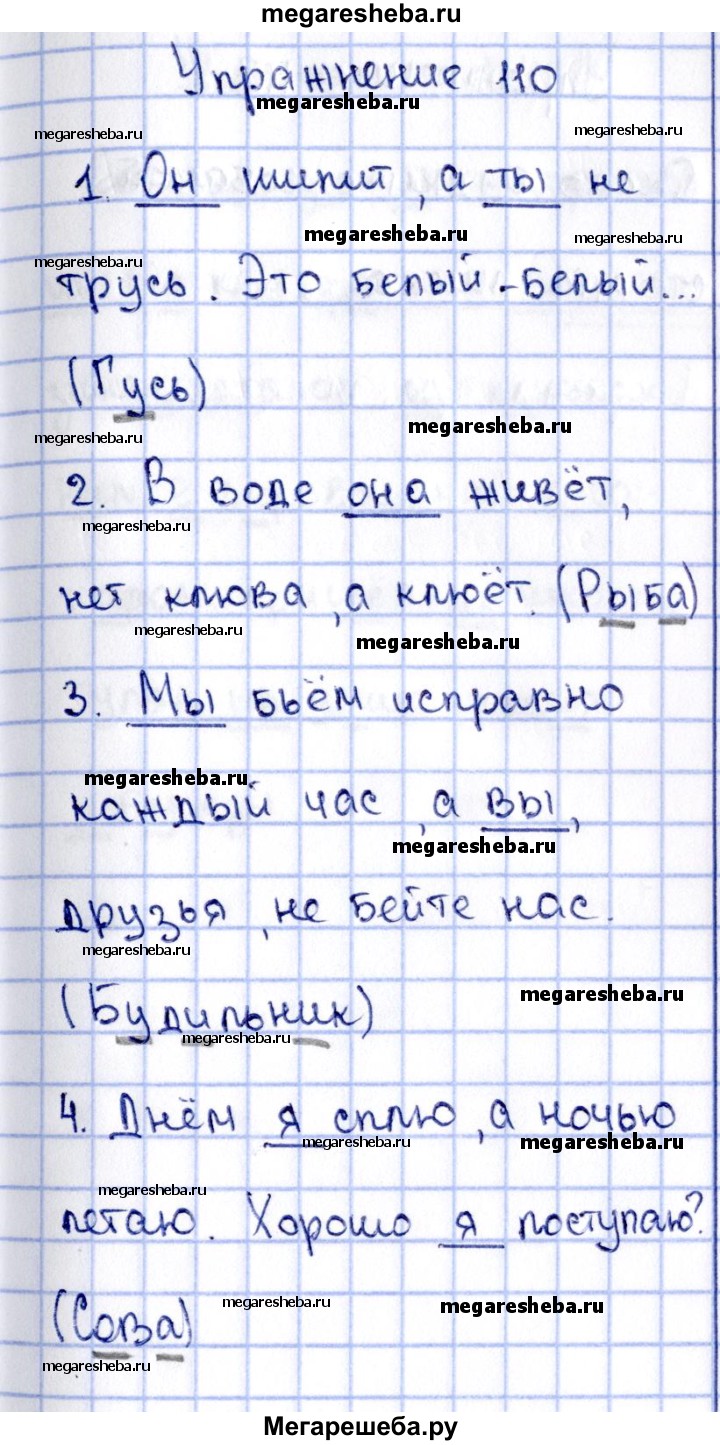 megaresheba.ru
Упражнение 110
megaresheba.ru
megaresheba.ru
megaresheba.ru
1. Он шипит, а ты не
megaresheba.ru
megaresheba.ru
megaresheba.ru
трусь. Это белый-белый...
(Гусь)
megaresheba.ru
megaresheba.ru
2. В воде она живёт,
megaresheba.ru
нет клюва, а клюёт. (Рыба)
megaresheba.ru
megaresheba.ru
3. Мы бьём исправно
megaresheba.ru
каждый час, а вы,
megaresheba.ru
друзья, не бейте нас.
megaresheba.ru
megaresheba.ru
(Будильник)
megaresheba.ru
4. Днём я сплю, а ночью
megaresheba.ru
megaresheba.ru
megaresheba.ru
летаю. Хорошо я поступаю?
megaresheba.ru
megaresheba.ru
(Сова)
megaresheba.ru
Мегарешеба.ру